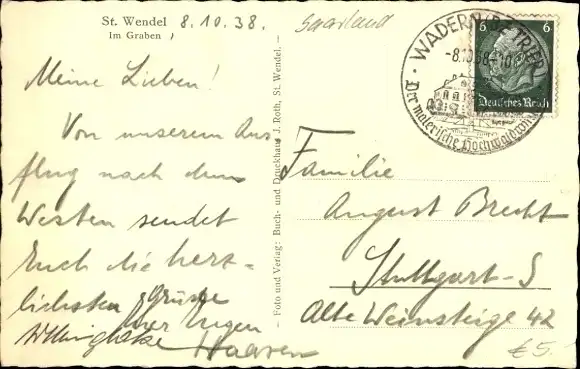 St. Wendel 8.10.38.
Im Graben
Saarland
Meine Lieben!
Von unserem Aus-
flug nach dem
Westen sendet
Euch die herz-
lichsten Grüsse
Euer Eugen
Haaren
Foto und Verlag: Buch- und Druckhaus J. Roth, St. Wendel.
WADERN (BZ. TRIER)
-8.10.38-10
Der malerische Hochwald
6 6
Deutsches Reich
Familie
August Brecht
Stuttgart-S
Alte Weinsteige 42
€5.-